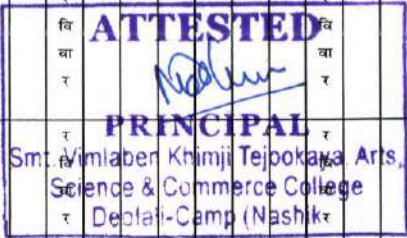 वि वि
ATTESTED
वा वा
र र
PRINCIPAL
र
Smt. Vimlaben Khimji Tejookaya Arts,
Science & Commerce College
र र
Deolali-Camp (Nashik